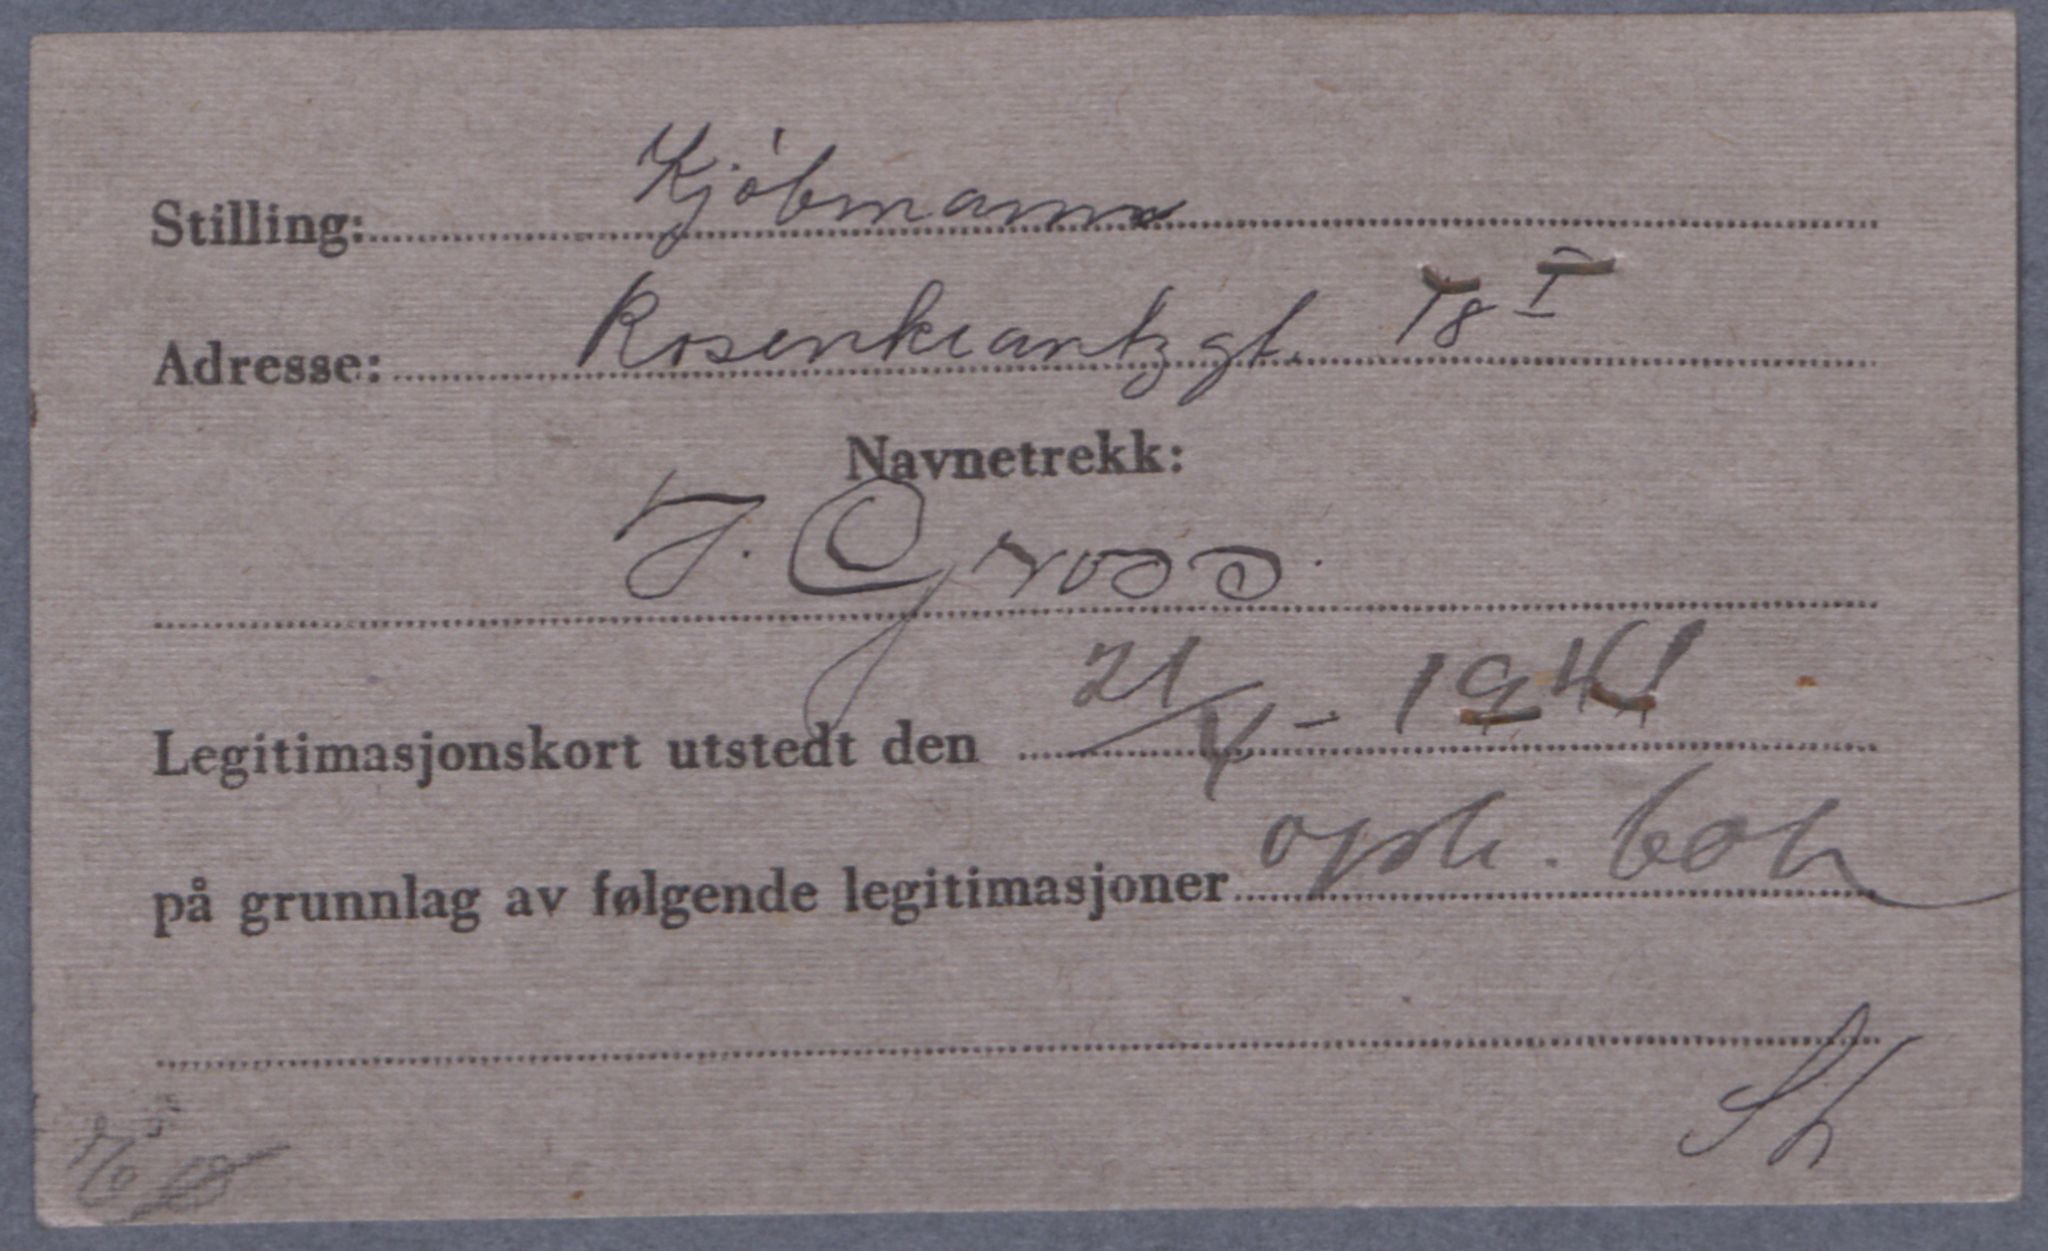 Stilling: Kjøbmann
Adresse: Rosenkrantzgt. 18 I
Navnetrekk:
J. Gross.
Legitimasjonskort utstedt den 21/4 - 1941
på grunnlag av følgende legitimasjoner oph. bok